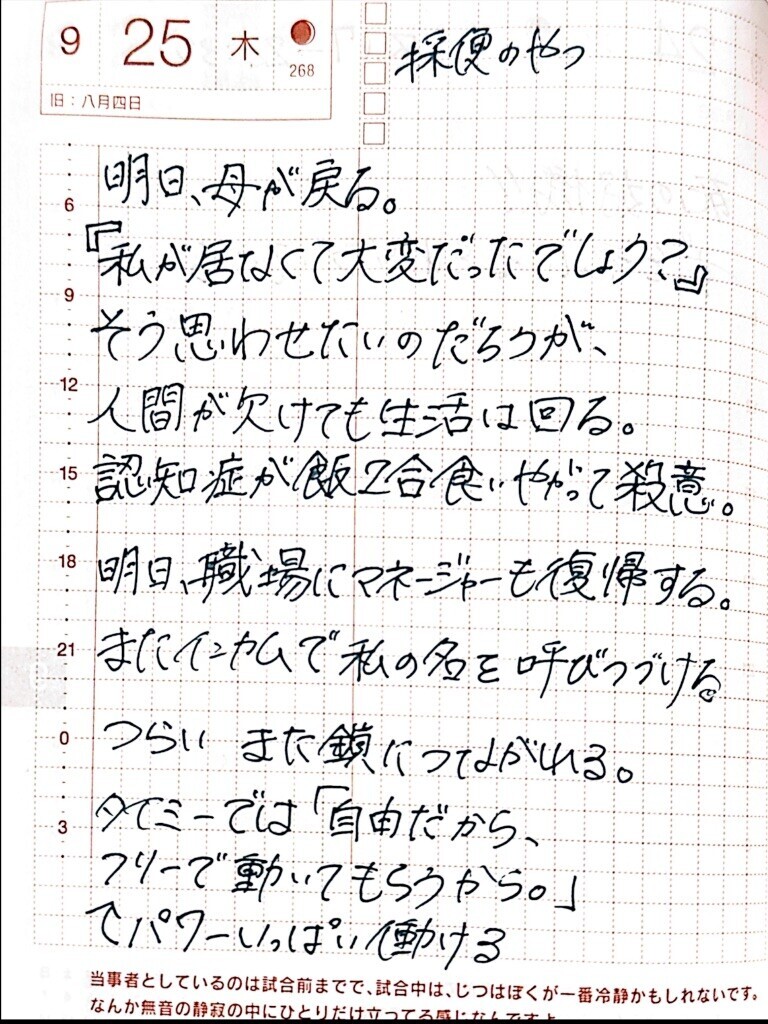 9 25 木
268
旧：八月四日
採便のやつ
明日、母が戻る。
『私が居なくて大変だったでしょう？』
そう思わせたいのだろうが、
人間が欠けても生活は回る。
認知症が飯2合食いやがって殺意。
明日、職場にマネージャーも復帰する。
またインカムで私の名を呼びつづける
つらい また鎖につながれる。
タイミーでは「自由だから、
フリーで動いてもらうから。」
↑パワーいっぱい働ける
6
9
12
15
18
21
0
3
当事者としているのは試合前までで、試合中は、じつはぼくが一番冷静かもしれないです。
なんか無音の静寂の中にひとりだけ立ってる感じなんですよ